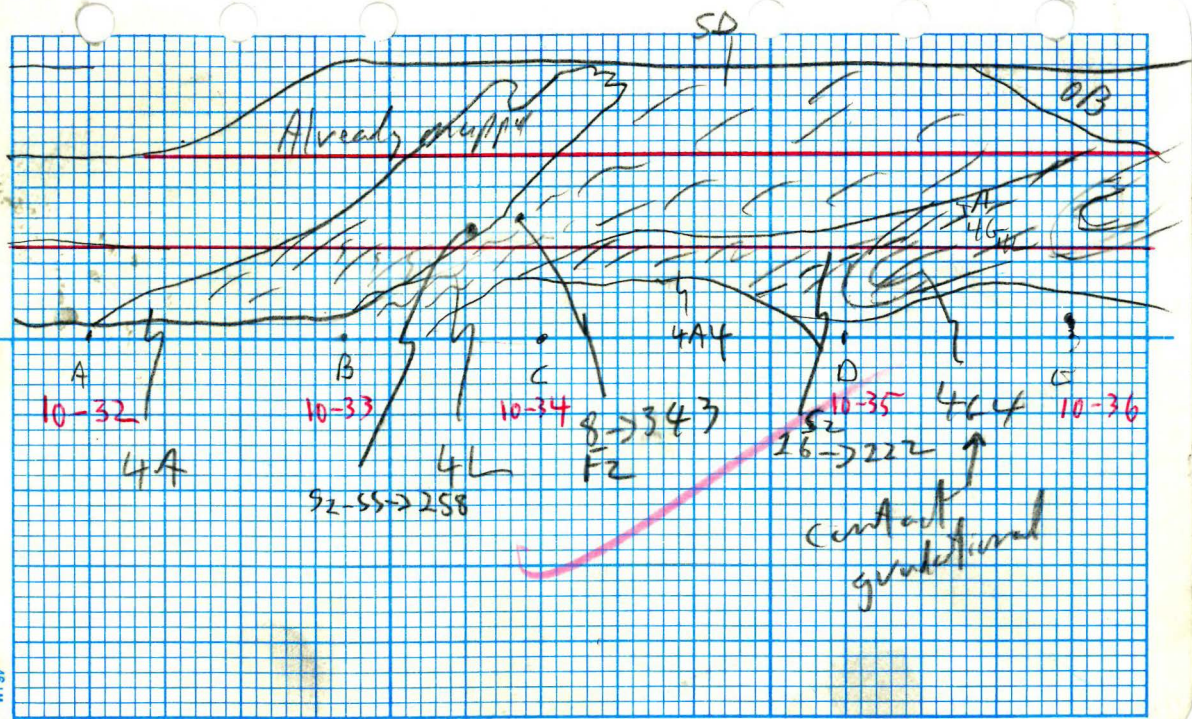 5D
OB
Already mapped
4A
4A4
A
B
C
D
10-32
10-33
10-34
10-35
10-36
4G4
8->343
F2
S2
26->222
4A
4L
S2-55->258
contact
gradational